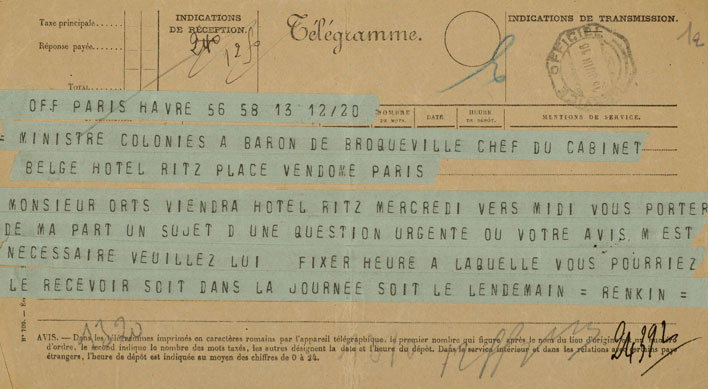 Taxe principale
Réponse payée
Total
INDICATIONS
DE RÉCEPTION.
Télégramme.
INDICATIONS DE TRANSMISSION.
OFFICIEL
NOMBRE
DE MOTS.
DATE.
HEURE
DE DÉPÔT.
MENTIONS DE SERVICE.
OFF PARIS HAVRE 56 58 13 12/20
= MINISTRE COLONIES A BARON DE BROQUEVILLE CHEF DU CABINET
BELGE HOTEL RITZ PLACE VENDOME PARIS
MONSIEUR ORTS VIENDRA HOTEL RITZ MERCREDI VERS MIDI VOUS PORTER
DE MA PART UN SUJET D UNE QUESTION URGENTE OU VOTRE AVIS M EST
NECESSAIRE VEUILLEZ LUI FIXER HEURE A LAQUELLE VOUS POURRIEZ
LE RECEVOIR SOIT DANS LA JOURNEE SOIT LE LENDEMAIN = RENKIN =
N° 700.
1320
24392
AVIS. — Dans les télégrammes imprimés en caractères romains par l'appareil télégraphique, le premier nombre qui figure après le nom du lieu d'origine est un numéro
d'ordre, le second indique le nombre des mots taxés, les autres désignent la date et l'heure du dépôt. Dans le service intérieur et dans les relations avec certains pays
étrangers, l'heure de dépôt est indiquée au moyen des chiffres de 0 à 24.